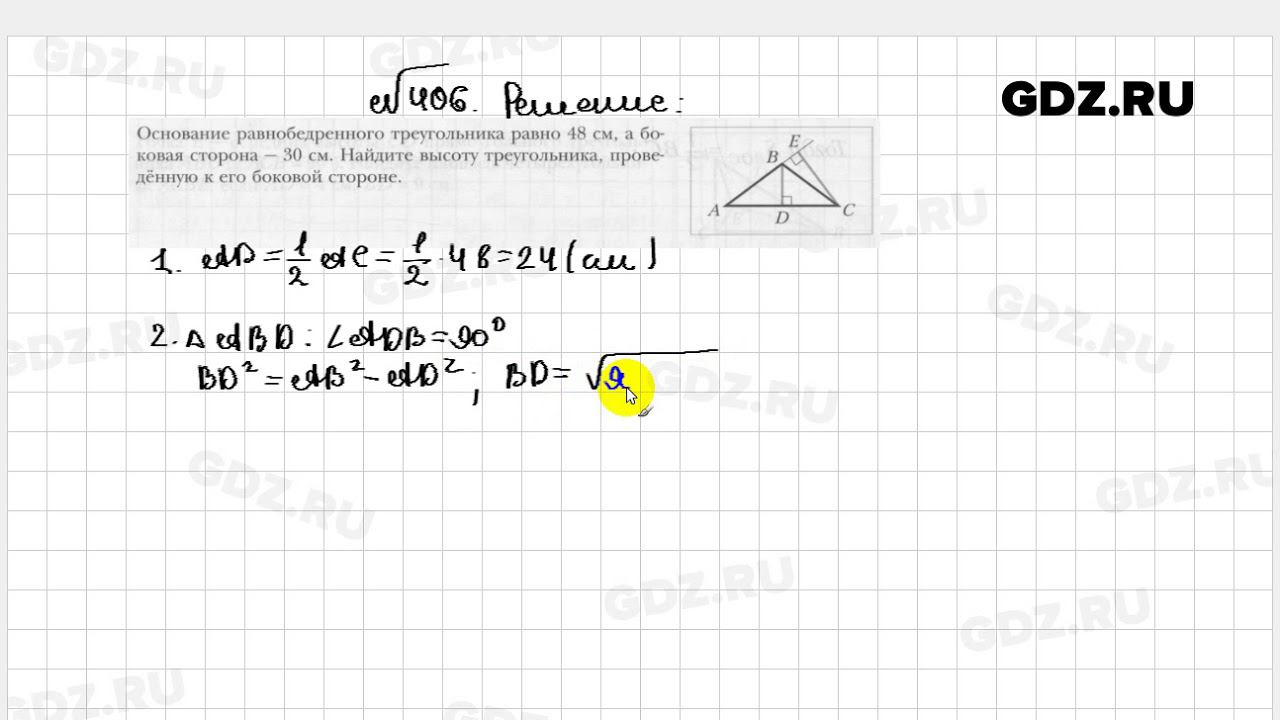 GDZ.RU
№406. Решение:
Основание равнобедренного треугольника равно 48 см, а бо-
ковая сторона – 30 см. Найдите высоту треугольника, прове-
дённую к его боковой стороне.
E
B
A
D
C
1. AD = 1/2 AC = 1/2 · 48 = 24 (см)
2. △ABD: ∠ADB = 90°
BD² = AB² – AD²; BD = √
GDZ.RU
GDZ.RU
GDZ.RU
GDZ.RU
GDZ.RU
GDZ.RU
GDZ.RU
GDZ.RU
GDZ.RU
GDZ.RU
GDZ.RU
GDZ.RU
GDZ.RU